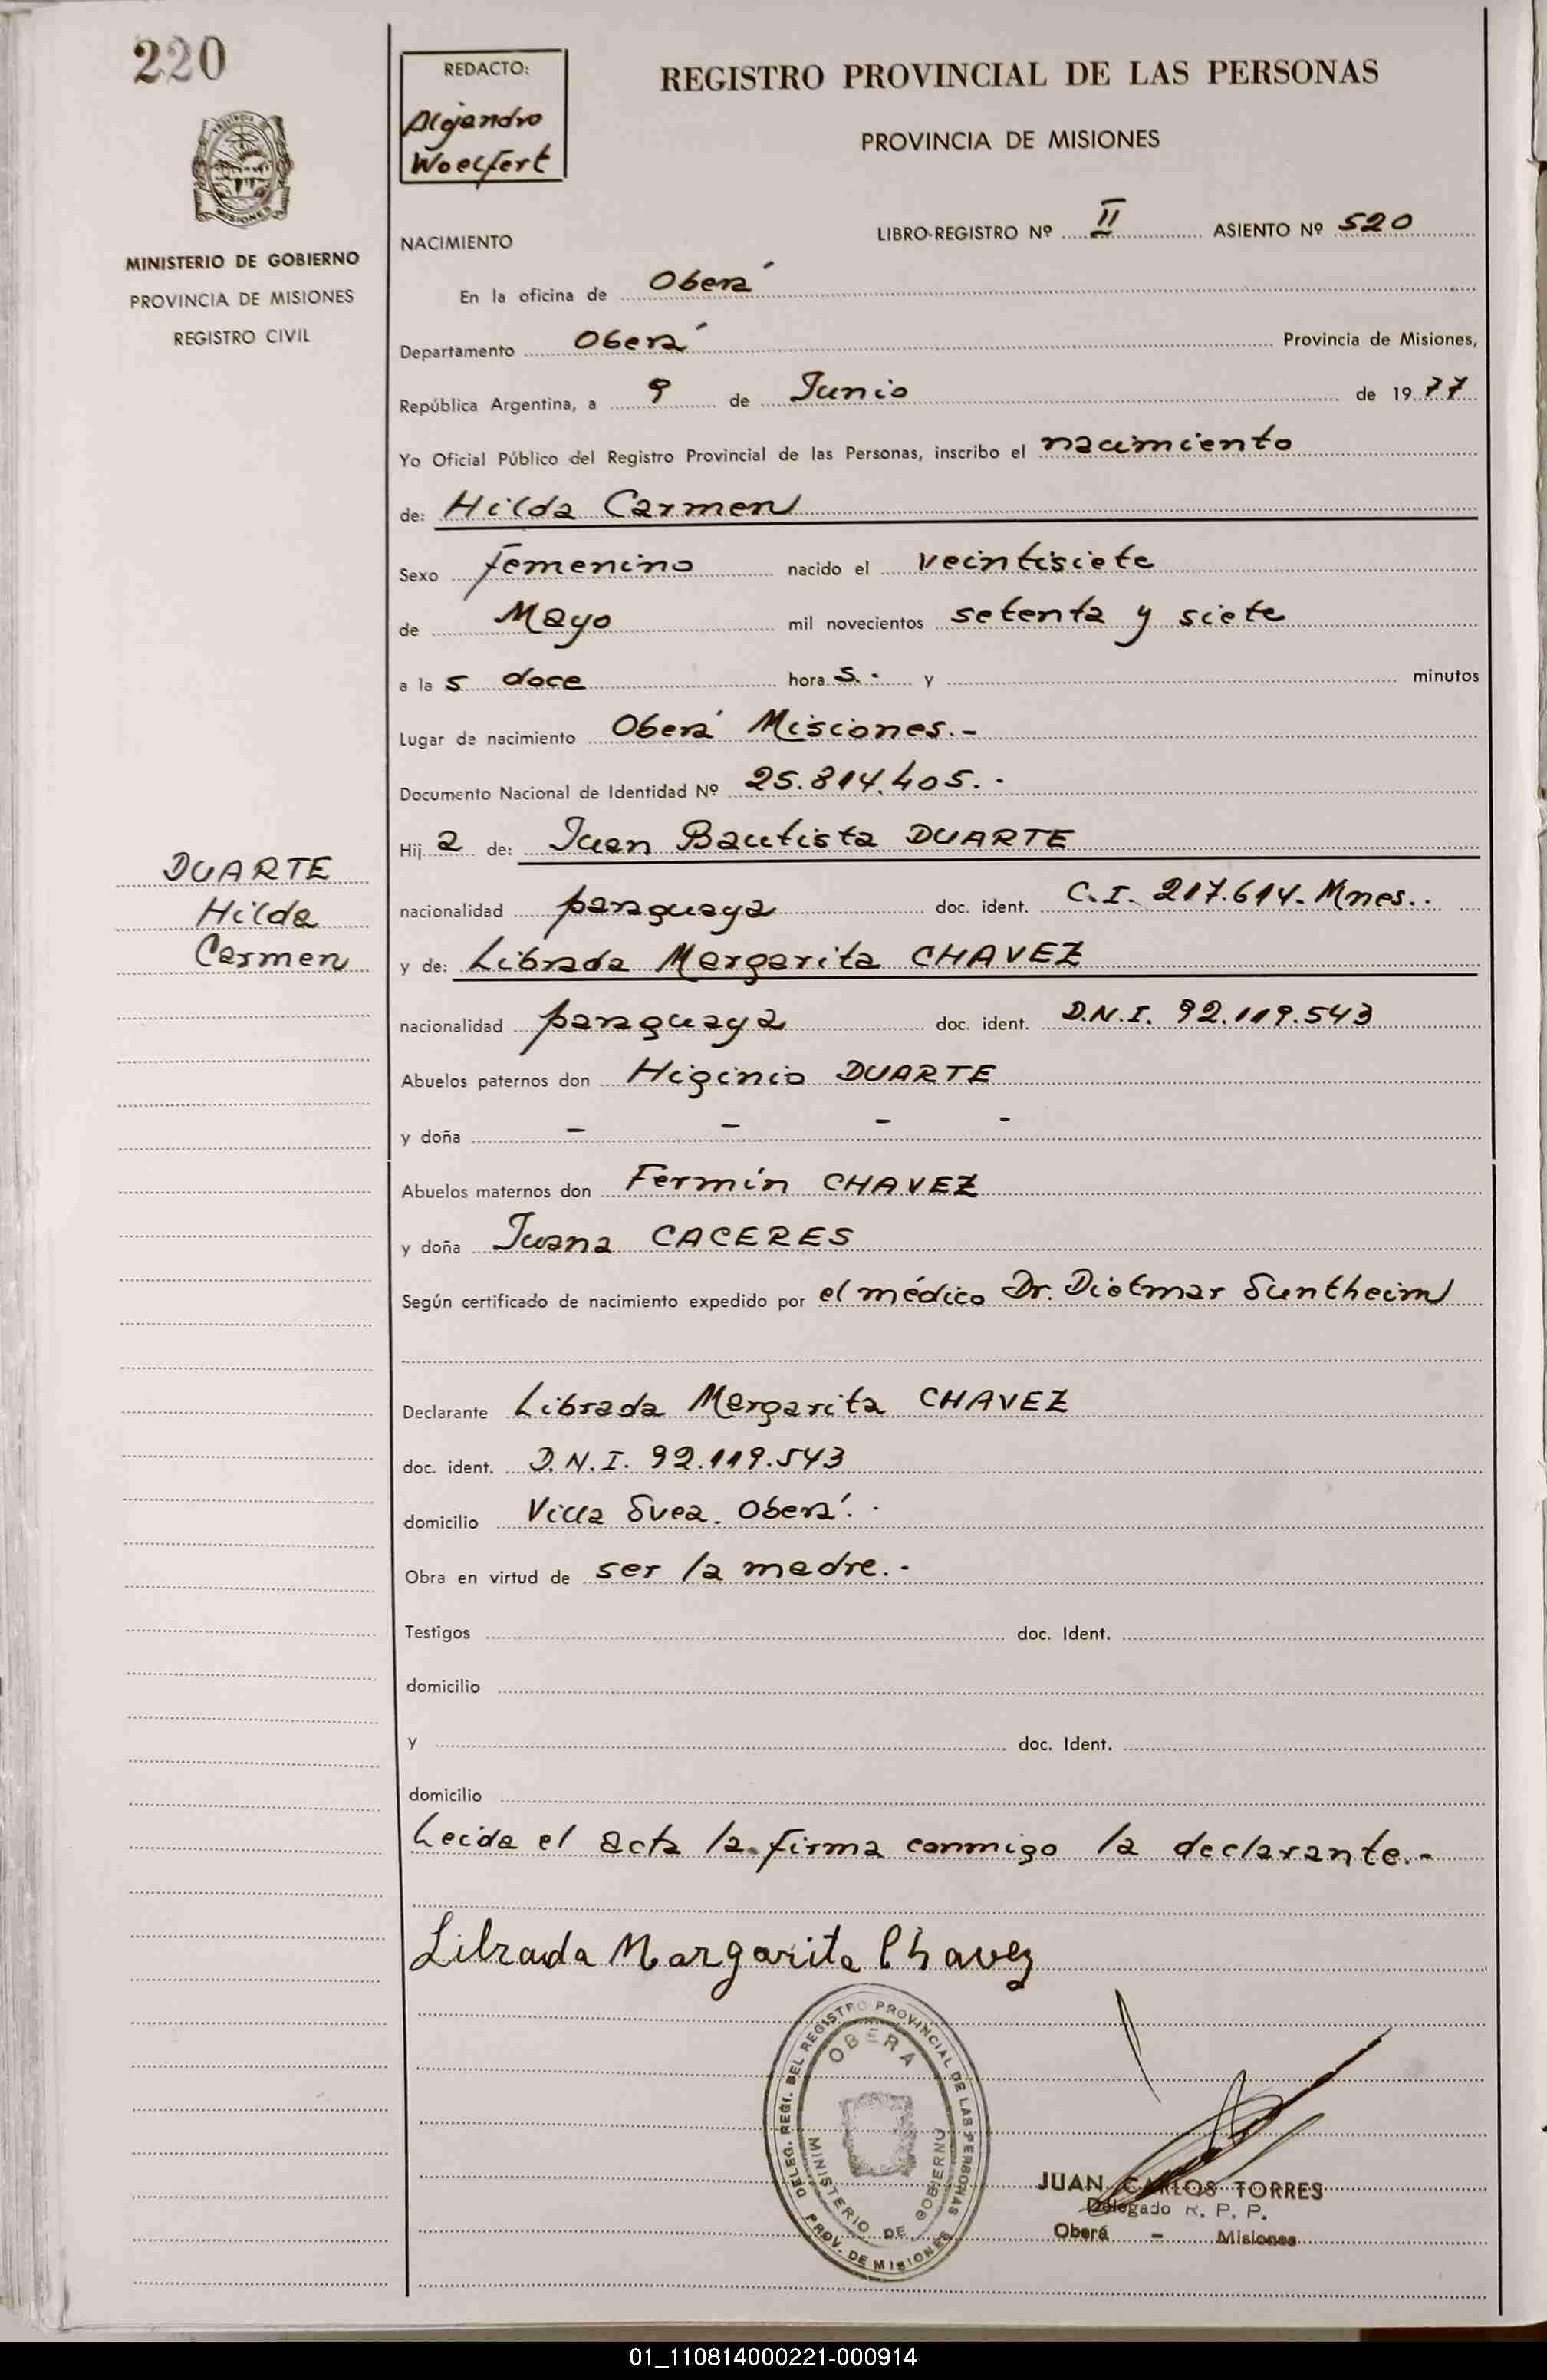 220
REDACTO:
Alejandro
Woelfert
REGISTRO PROVINCIAL DE LAS PERSONAS
PROVINCIA DE MISIONES
MISIONES
MINISTERIO DE GOBIERNO
PROVINCIA DE MISIONES
REGISTRO CIVIL
NACIMIENTO
LIBRO-REGISTRO Nº II ASIENTO Nº 520
En la oficina de Oberá
Departamento Oberá Provincia de Misiones,
República Argentina, a 9 de Junio de 1977
Yo Oficial Público del Registro Provincial de las Personas, inscribo el nacimiento
de: Hilda Carmen
Sexo femenino nacido el veintisiete
de Mayo mil novecientos setenta y siete
a la s doce hora s.- y minutos
Lugar de nacimiento Oberá Misiones.-
Documento Nacional de Identidad Nº 25.814.405.-
Hij a de: Juan Bautista DUARTE
DUARTE
Hilda
Carmen
nacionalidad paraguaya doc. ident. C.I. 217.614. Mnes..
y de: Librada Margarita CHAVEZ
nacionalidad paraguaya doc. ident. D.N.I. 92.119.543
Abuelos paternos don Higinio DUARTE
y doña - - - -
Abuelos maternos don Fermín CHAVEZ
y doña Juana CACERES
Según certificado de nacimiento expedido por el médico Dr. Dietmar Suntheim
Declarante Librada Margarita CHAVEZ
doc. ident. D.N.I. 92.119.543
domicilio Villa Svea. Oberá.-
Obra en virtud de ser la madre.-
Testigos doc. Ident.
domicilio
y doc. Ident.
domicilio
Leida el acta la firma conmigo la declarante.-
Librada Margarita Chavez
DELEG. REGI. DEL REGISTRO PROVINCIAL DE LAS PERSONAS
OBERA
MINISTERIO DE GOBIERNO
PROV. DE MISIONES
JUAN CARLOS TORRES
Delegado R. P. P.
Oberá - Misiones
01_110814000221-000914